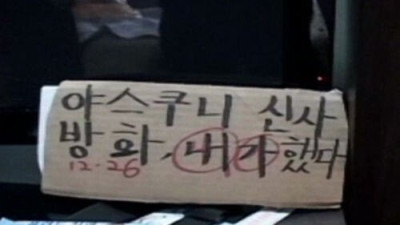 야스쿠니 신사
방화, 내가 했다
12. 26